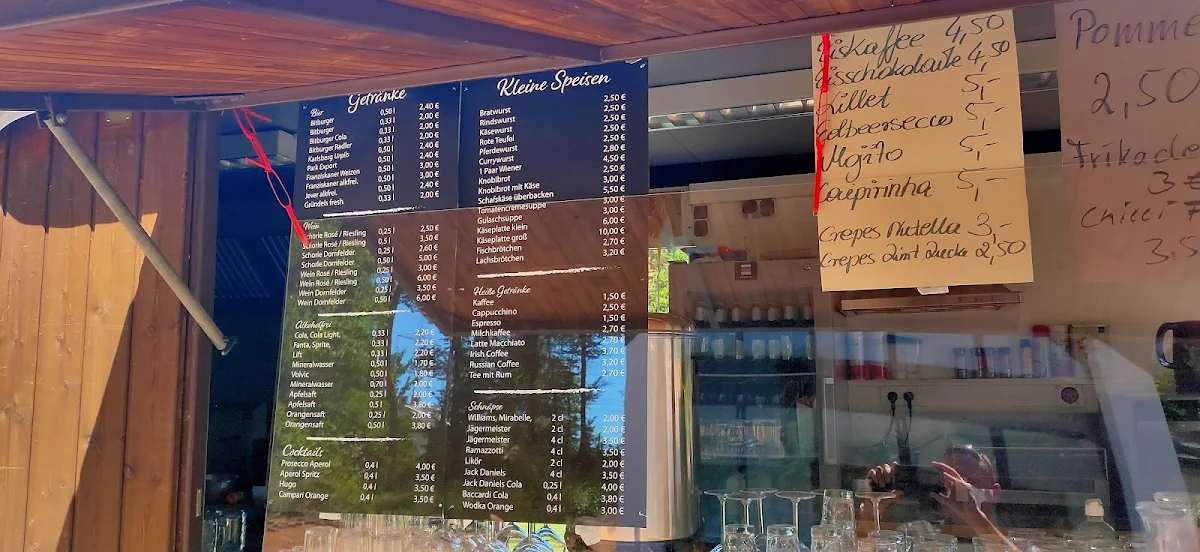 Getränke
Bier
Bitburger 0,50 l 2,40 €
Bitburger 0,33 l 2,00 €
Bitburger Cola 0,33 l 2,00 €
Bitburger Radler 0,33 l 2,00 €
Karlsberg Urpils 0,50 l 2,40 €
Park Export 0,50 l 2,40 €
Franziskaner Weizen 0,50 l 3,00 €
Franziskaner alkfrei. 0,50 l 3,00 €
Jever alkfrei. 0,50 l 2,40 €
Gründels fresh 0,33 l 2,00 €
Wein
Schorle Rosé / Riesling 0,25 l 2,50 €
Schorle Rosé / Riesling 0,5 l 3,50 €
Schorle Dornfelder 0,25 l 2,60 €
Schorle Dornfelder 0,50 l 5,00 €
Wein Rosé / Riesling 0,25 l 3,00 €
Wein Rosé / Riesling 0,50 l 6,00 €
Wein Dornfelder 0,25 l 3,50 €
Wein Dornfelder 0,50 l 6,00 €
Alkoholfrei
Cola, Cola Light, 0,33 l 2,20 €
Fanta, Sprite, 0,33 l 2,20 €
Lift 0,33 l 2,20 €
Mineralwasser 0,50 l 1,70 €
Volvic 0,50 l 1,80 €
Mineralwasser 0,70 l 2,00 €
Apfelsaft 0,25 l 2,00 €
Apfelsaft 0,5 l 3,80 €
Orangensaft 0,25 l 2,00 €
Orangensaft 0,50 l 3,80 €
Cocktails
Prosecco Aperol 0,4 l 4,00 €
Aperol Spritz 0,4 l 3,50 €
Hugo 0,4 l 3,50 €
Campari Orange 0,4 l 3,50 €
Kleine Speisen
Bratwurst 2,50 €
Rindswurst 2,50 €
Käsewurst 2,50 €
Rote Teufel 2,50 €
Pferdewurst 2,80 €
Currywurst 4,50 €
1 Paar Wiener 2,50 €
Knoblibrot 3,00 €
Knoblibrot mit Käse 3,50 €
Schafskäse überbacken 5,50 €
Tomatencremesuppe 3,00 €
Gulaschsuppe 3,00 €
Käseplatte klein 6,00 €
Käseplatte groß 10,00 €
Fischbrötchen 2,70 €
Lachsbrötchen 3,20 €
Heiße Getränke
Kaffee 1,50 €
Cappuchino 2,50 €
Espresso 1,50 €
Milchkaffee 2,70 €
Latte Macchiato 2,70 €
Irish Coffee 3,70 €
Russian Coffee 3,20 €
Tee mit Rum 2,70 €
Schnäpse
Williams, Mirabelle, 2 cl 2,00 €
Jägermeister 2 cl 2,00 €
Jägermeister 4 cl 3,50 €
Ramazzotti 4 cl 3,50 €
Likör 2 cl 2,00 €
Jack Daniels 4 cl 3,50 €
Jack Daniels Cola 0,25 l 4,00 €
Baccardi Cola 0,4 l 3,80 €
Wodka Orange 0,4 l 3,00 €
Eiskaffee 4,50
Eisschokolade 4,50
Lillet 5,-
Erdbeersecco 5,-
Mojito 5,-
Caipirinha 5,-
Crepes Nutella 3,-
Crepes Zimt Zucke 2,50
Pomme
2,50
Frikade
3
Chilli
3,5